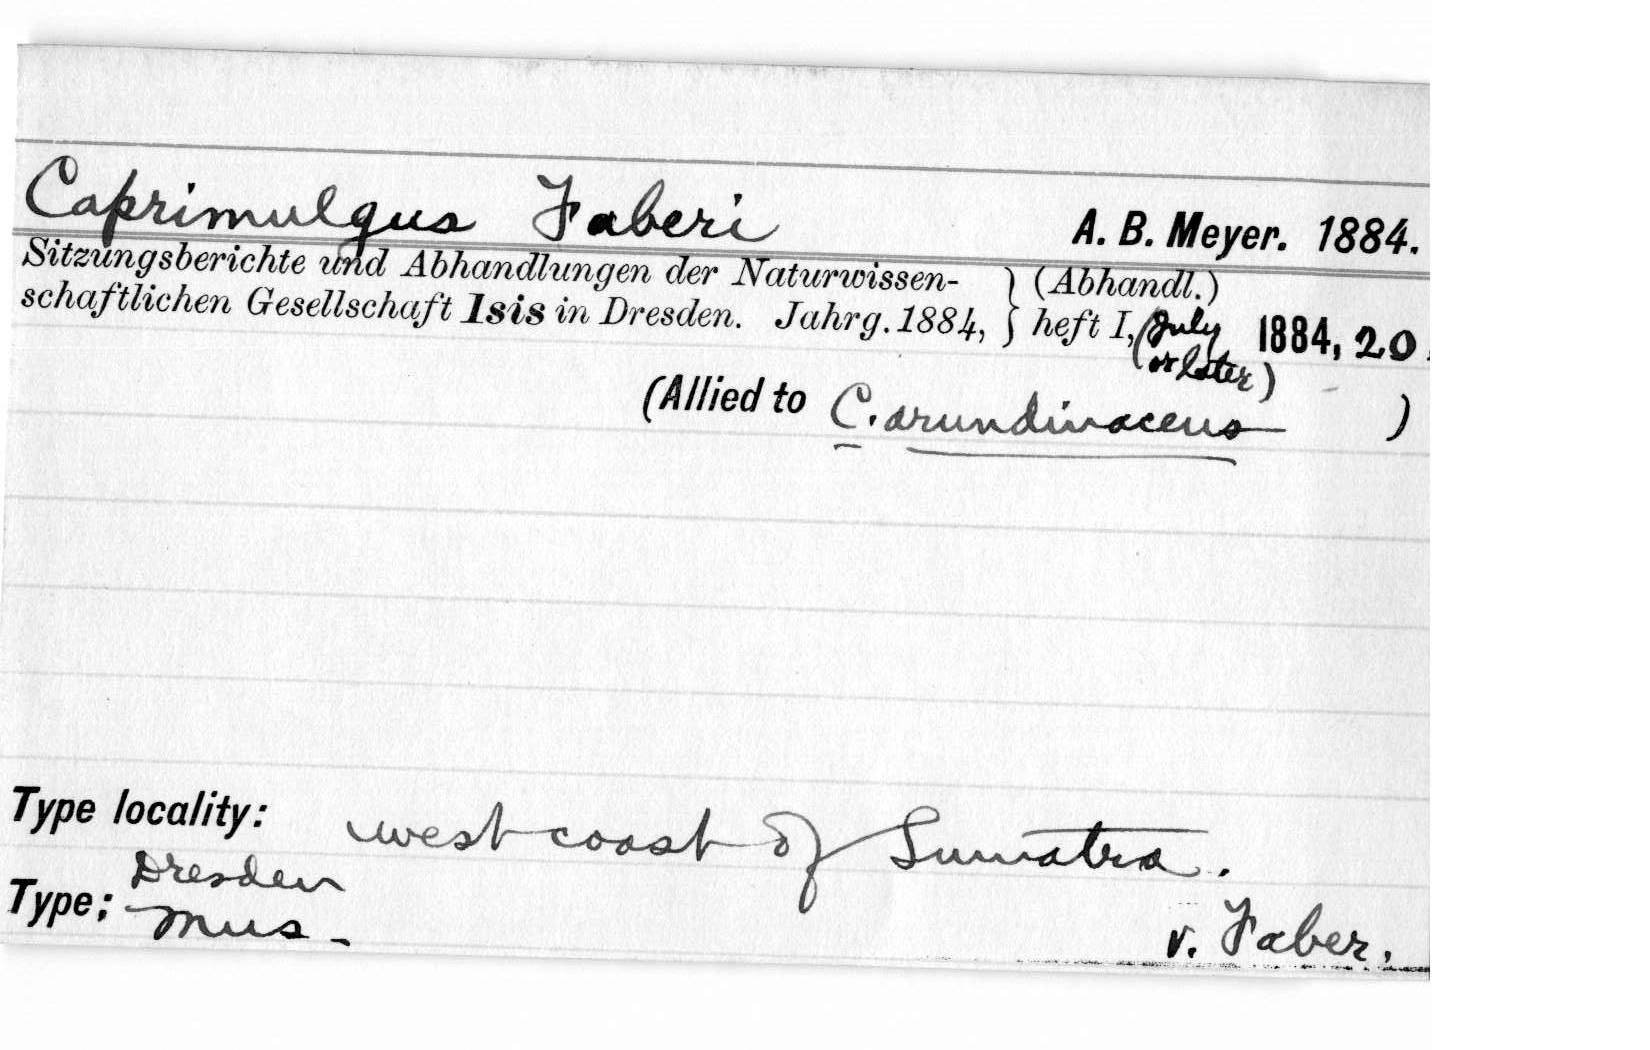 Caprimulgus Faberi A. B. Meyer. 1884.
Sitzungsberichte und Abhandlungen der Naturwissen- } (Abhandl.)
schaftlichen Gesellschaft Isis in Dresden. Jahrg. 1884, } heft I, (July 1884, 20.
or later)
(Allied to C. arundinaceus )
Type locality: west coast of Sumatra.
Dresden
Type; Mus-
v. Faber.